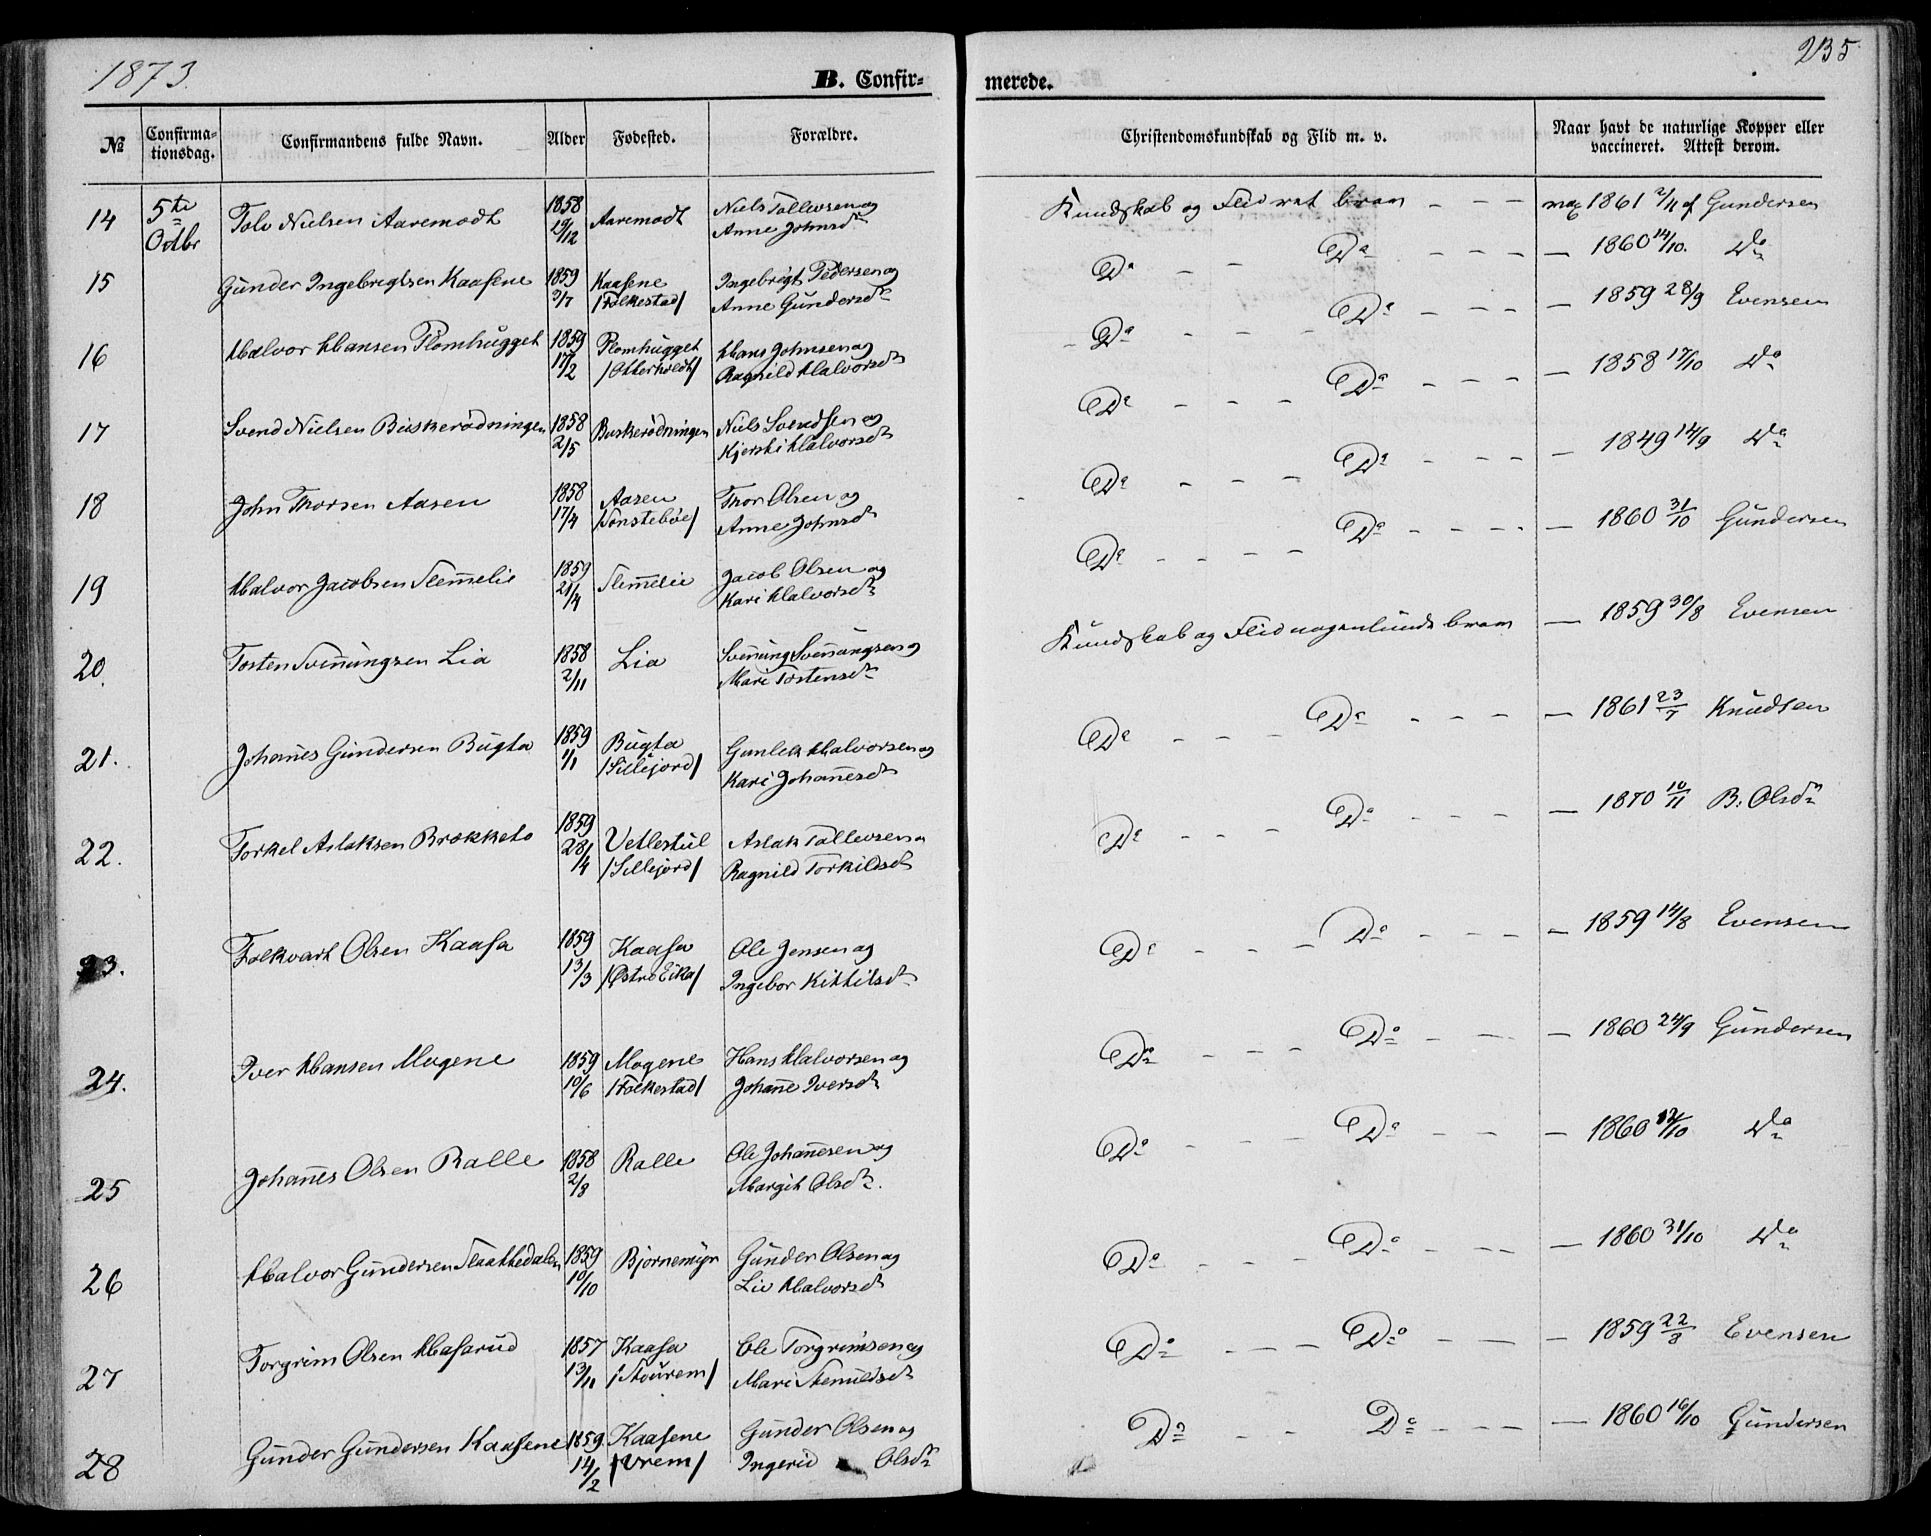 1873.
B. Confir-
merede.
235
№
Confirma-
tionsdag.
Confirmandens fulde Navn.
Alder
Fødested.
Forældre.
Christendomskundskab og Flid m. v.
Naar havt de naturlige Kopper eller
vaccineret. Attest derom.
14 5te Octbr Tolv Nielsen Aaremodt 1858 19/12 Aaremodt Niels Tollevsen og
Anne Johnsdr
Kundskab og Flid ret bram – – – 1861 2/4 af Gundersen
15 Gunder Ingebregtsen Kaasene 1859 3/7 Kaasene
/Folkestad/
Ingebregt Pedersen og
Anne Gundersdr
Do – – Do – – – – 1860 14/10. Do
16 Halvor Hansen Plomhugget 1859 17/2 Plomhugget
/Otterholdt/
Hans Johnsen og
Ragnild Halvorsdr
Do – – – Do – – – – 1859 28/9 Evensen
17 Svend Nielsen Buskerødningen 1858 2/5 Buskerødningen
Niels Svendsen og
Kjersti Halvorsdr
Do – – – Do – – – – 1858 17/10 Do
18 John Thorsen Aasen 1858 17/4 Aasen
/Tonstebøe/
Thor Olsen og
Anne Johnsdr
Do – – – Do – – – – 1849 14/9 Do
19 Halvor Jacobsen Slemelie 1859 21/4 Slemelie
Jacob Olsen og
Kari Halvorsdr
Do – – – – Do – – – – 1860 31/10 Gundersen
20. Tosten Svenungsen Lia 1858 2/11 Lia
Svenung Svenungsen og
Mari Tostensdr
Kundskab og Flid nogenlunde bram – 1859 30/8 Evensen
21. Johanes Gundersen Bugta 1859 1/1 Bugta
/Sillejord/
Gunlek Halvorsen og
Kari Johanesdr
Do – – – Do – – – – 1861 23/7 Knudsen
22. Torkel Aslaksen Brækketo 1859 28/4 Vetlestul
/Sillejord/
Aslak Tollevsen og
Ragnild Torkildsdr
Do – – – Do – – – – 1870 10/11 B. Olsdn
23. Folkvart Olsen Kaasa 1859 13/3 Kaasa
/Østre Eika/
Ole Jensen og
Ingebor Kittilsdr
Do – – – Do – – – – 1859 14/8 Evensen
24. Iver Hansen Mogene 1859 10/6 Mogene
/Folkestad/
Hans Halvorsen og
Johane Iversdr
Do – – – Do – – – 1860 24/9 Gundersen
25 Johanes Olsen Ralle 1858 2/8 Ralle
Ole Johannesen og
Margit Olsdr.
Do – – – – Do – – – 1860 12/10 Do
26 Halvor Gundersen Slaakkedalen 1859 10/10 Bjørnemyr
Gunder Olsen og
Liv Halvorsdr
Do – – – Do – – – – 1860 31/10 Do
27 Torgrim Olsen Hasarud 1857 13/11 Kaasa
/Stourem/
Ole Torgrimsen og
Mari Stenuldsdr
Do – – – – Do – – – 1859 22/8 Evensen
28 Gunder Gundersen Kaasene 1859 14/2 Kaasene
/Vrem/
Gunder Olsen og
Ingerid Olsdr
Do – – Do – – – – 1860 16/10 Gundersen